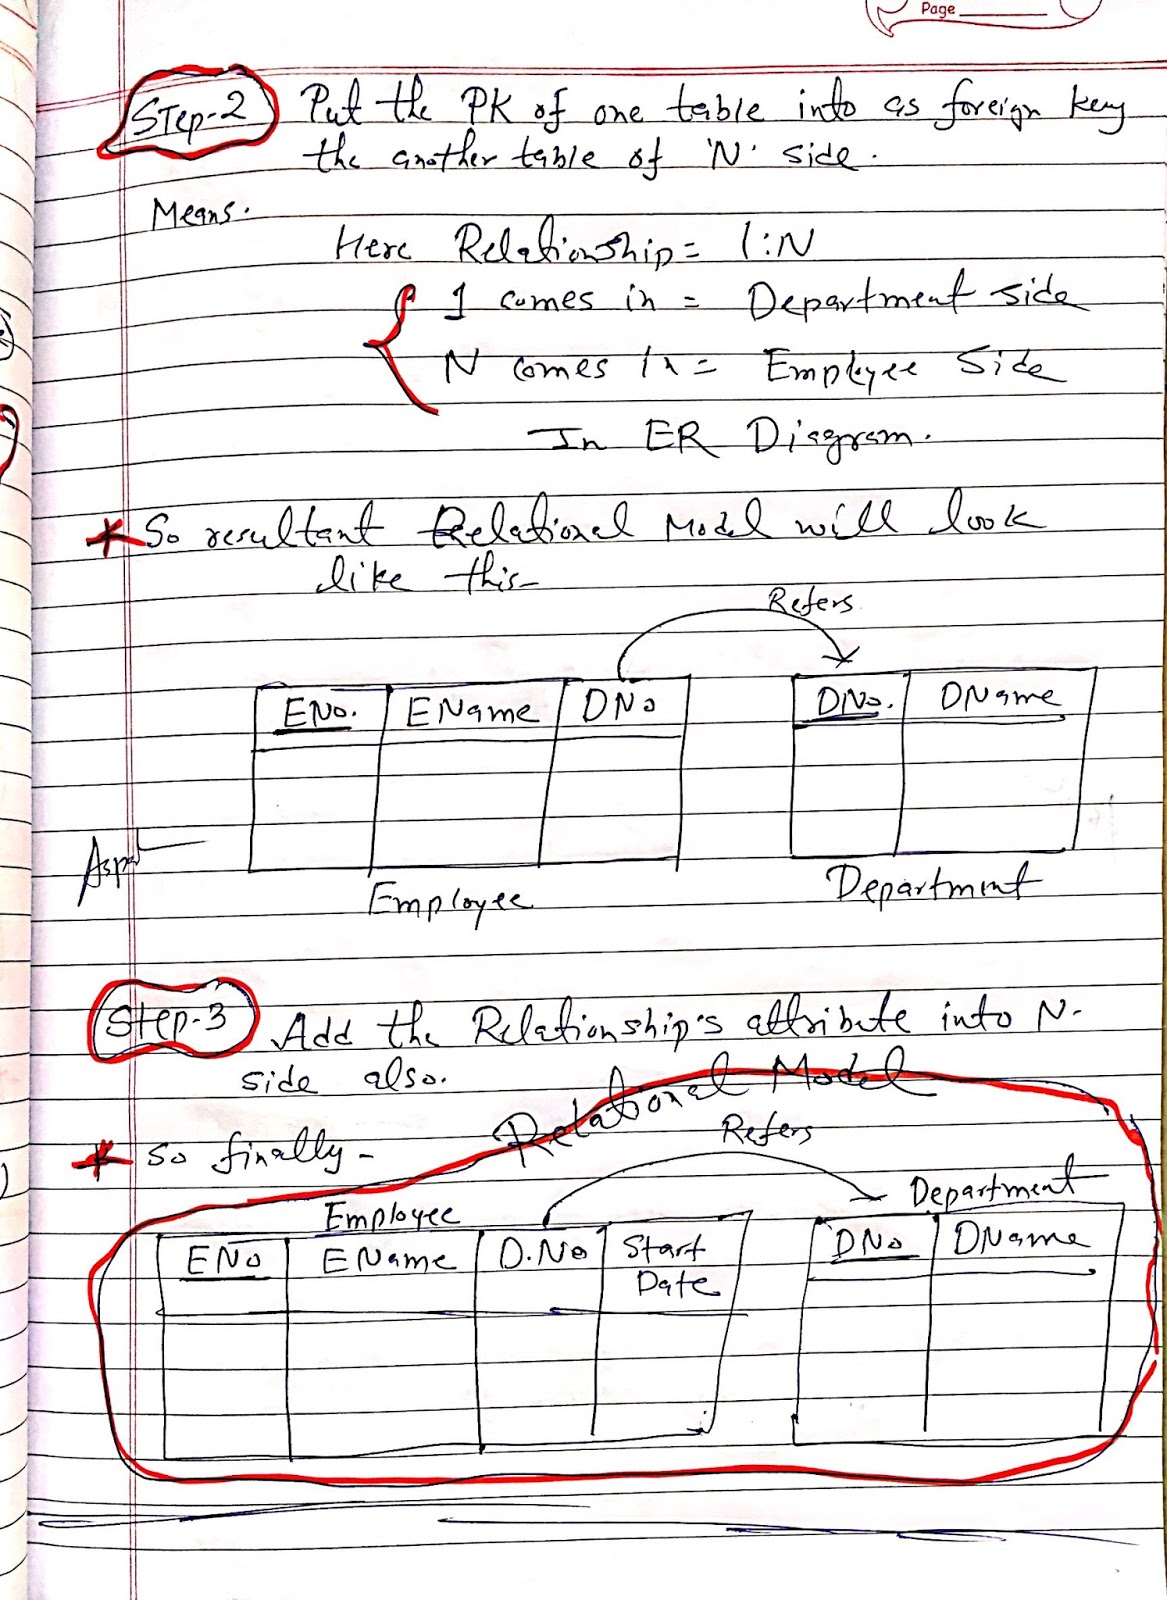 Page
Step-2 Put the PK of one table into as foreign key
the another table of 'N' side.
Means.
Here Relationship = 1:N
1 comes in = Department side
N comes in = Employee Side
In ER Diagram.
* So resultant Relational Model will look
like this-
Refers
ENo. EName DNo DNo. DName
Employee Department
Step-3 Add the Relationship's attribute into N-
side also.
Relational Model
* So finally -
Refers
Employee Department
ENo EName D.No Start Date DNo DName